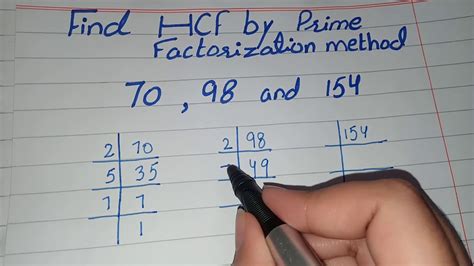 Find HCF by Prime
Factorization method
70 , 98 and 154
2 70
5 35
7 7
1
2 98
49
154